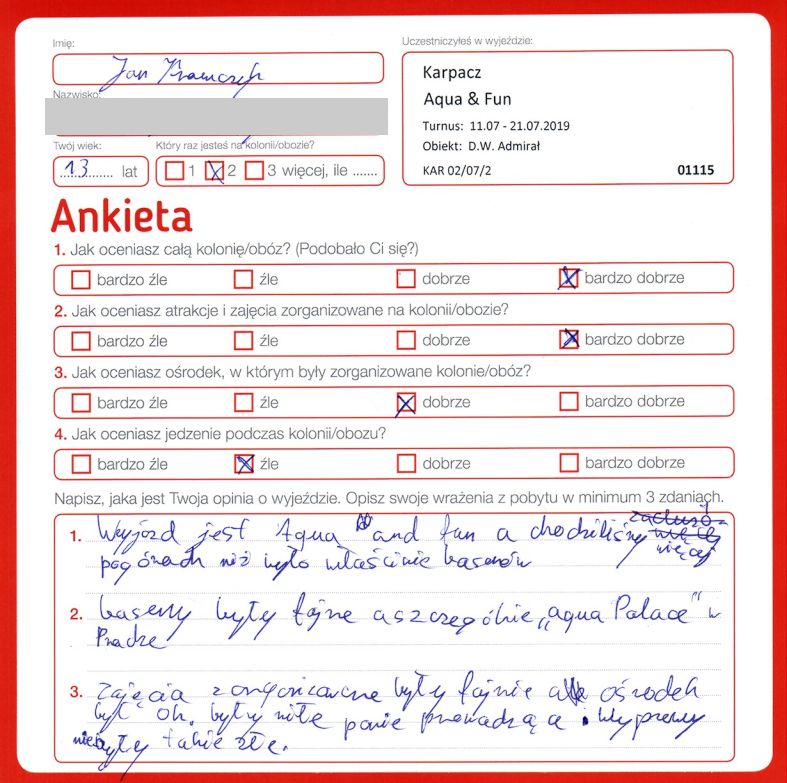 Imię:
Jan
Nazwisko:
Twój wiek:
13 lat
Który raz jesteś na kolonii/obozie?
1 2 3 więcej, ile .......
Uczestniczyłeś w wyjeździe:
Karpacz
Aqua & Fun
Turnus: 11.07 - 21.07.2019
Obiekt: D.W. Admirał
KAR 02/07/2 01115
Ankieta
1. Jak oceniasz całą kolonię/obóz? (Podobało Ci się?)
bardzo źle źle dobrze bardzo dobrze
2. Jak oceniasz atrakcje i zajęcia zorganizowane na kolonii/obozie?
bardzo źle źle dobrze bardzo dobrze
3. Jak oceniasz ośrodek, w którym były zorganizowane kolonie/obóz?
bardzo źle źle dobrze bardzo dobrze
4. Jak oceniasz jedzenie podczas kolonii/obozu?
bardzo źle źle dobrze bardzo dobrze
Napisz, jaka jest Twoja opinia o wyjeździe. Opisz swoje wrażenia z pobytu w minimum 3 zdaniach.
1. Wyjazd jest Aqua and fun a chodziliśmy więcej
po górach niż było właścinie basenów
2. baseny były fajne a szczególnie „aqua Palace" w
Pradze
3. Zajęcia zorganizowane były fajnie a ośrodek
był ok. były miłe panie prowadzące. Wyprawy
nie były takie złe.